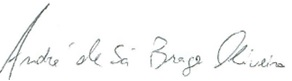 André de Sá Braga Oliveira